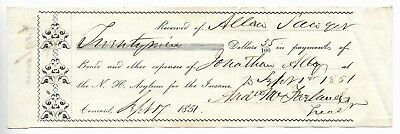 Received of Allen Sawyer
Twenty nine Dollars 55/100 in payment of
Board and other expenses of Jonathan Alby
at the N. H. Asylum for the Insane. to Sept 1st 1851
Concord, Sept 17 1851. Andw McFarland
Treasr